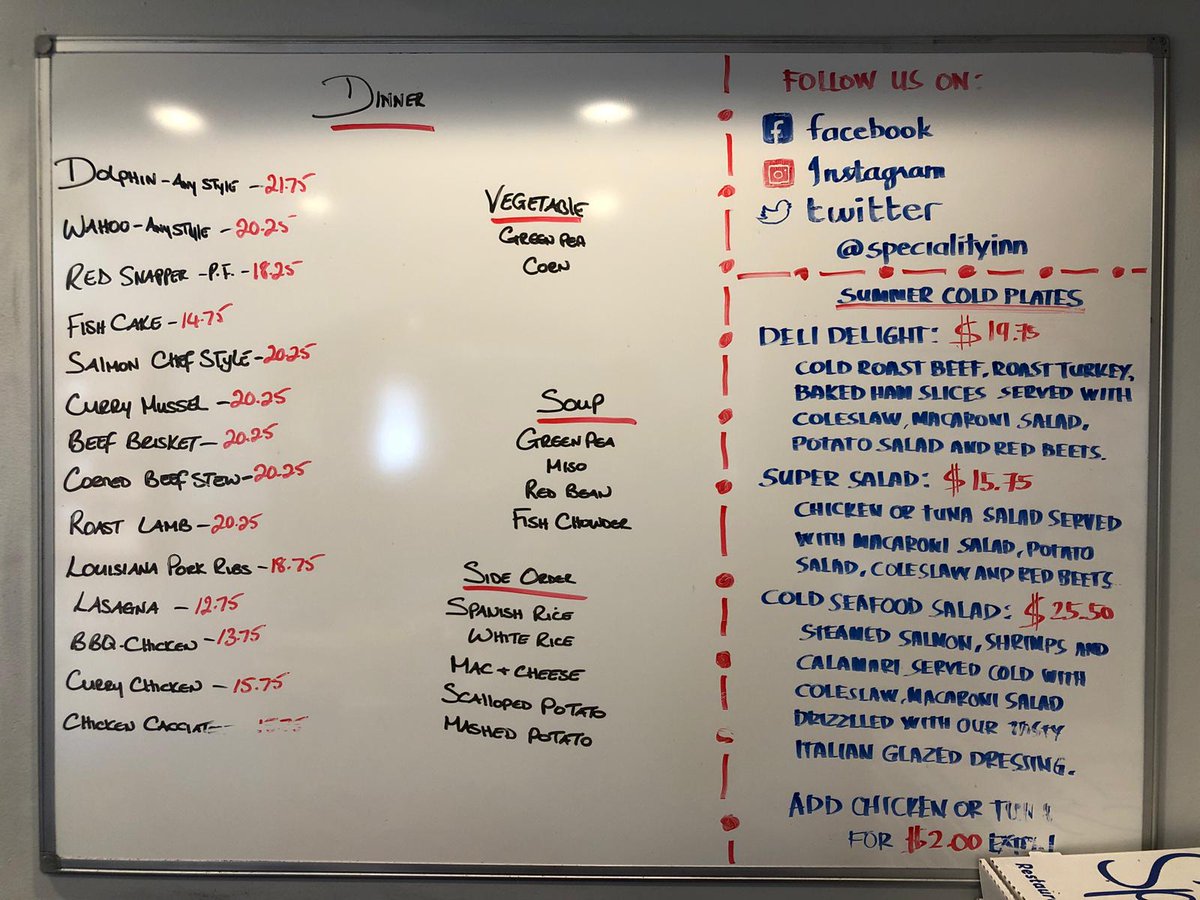 DINNER
DOLPHIN - ANY STYLE - 21.75
WAHOO - ANY STYLE - 20.25
RED SNAPPER - P.F. - 18.25
FISH CAKE - 14.75
SALMON CHEF STYLE - 20.25
CURRY MUSSEL - 20.25
BEEF BRISKET - 20.25
CORNED BEEF STEW - 20.25
ROAST LAMB - 20.25
LOUISIANA PORK RIBS - 18.75
LASAGNA - 12.75
BBQ-CHICKEN - 13.75
CURRY CHICKEN - 15.75
CHICKEN
VEGETABLE
GREEN PEA
CORN
SOUP
GREEN PEA
MISO
RED BEAN
FISH CHOWDER
SIDE ORDER
SPANISH RICE
WHITE RICE
MAC + CHEESE
SCALLOPED POTATO
MASHED POTATO
FOLLOW US ON:
facebook
Instagram
twitter
@specialityinn
SUMMER COLD PLATES
DELI DELIGHT: $19.75
COLD ROAST BEEF, ROAST TURKEY,
BAKED HAM SLICES SERVED WITH
COLESLAW, MACARONI SALAD,
POTATO SALAD AND RED BEETS.
SUPER SALAD: $15.75
CHICKEN OR TUNA SALAD SERVED
WITH MACARONI SALAD, POTATO
SALAD, COLESLAW AND RED BEETS
COLD SEAFOOD SALAD: $25.50
STEAMED SALMON, SHRIMPS AND
CALAMARI SERVED COLD WITH
COLESLAW, MACARONI SALAD
DRIZZLLED WITH OUR TASTY
ITALIAN GLAZED DRESSING.
ADD CHICKEN OR TUNA
FOR $2.00